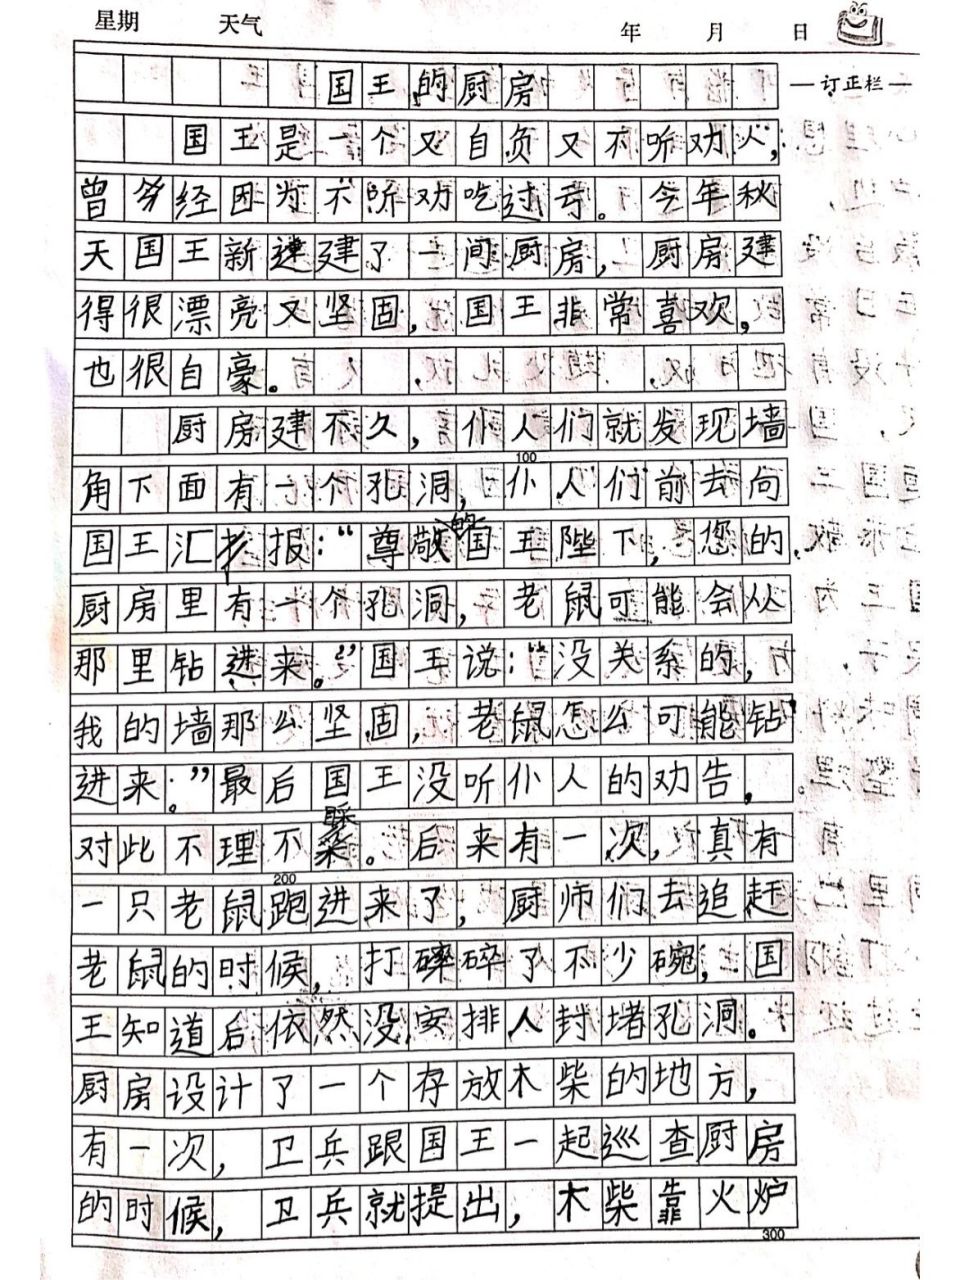 星期 天气 年 月 日
国王的厨房
订正栏
国王是一个又自负又不听劝人,
曾经因为不听劝吃过亏。今年秋
天国王新建了一间厨房,厨房建
得很漂亮又坚固,国王非常喜欢,
也很自豪。
厨房建不久,仆人们就发现墙
100
角下面有一个孔洞,仆人们前去向
国王汇报:“尊敬的国王陛下,您的
厨房里有一个孔洞,老鼠可能会从
那里钻进来。”国王说:“没关系的,
我的墙那么坚固,老鼠怎么可能钻
进来。”最后国王没听仆人的劝告,
对此不理不睬。后来有一次,真有
200
一只老鼠跑进来了,厨师们去追赶
老鼠的时候,打碎了不少碗,国
王知道后依然没安排人封堵孔洞。
厨房设计了一个存放木柴的地方,
有一次,卫兵跟国王一起巡查厨房
的时候,卫兵就提出,木柴靠火炉
300